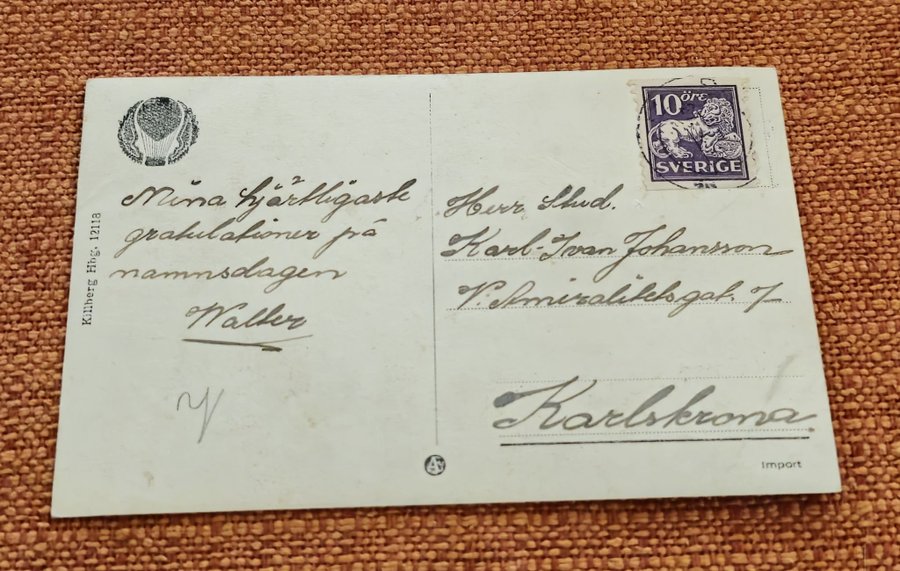 10 öre
SVERIGE
Mina hjärtligaste
gratulationer på
namnsdagen
Walter
Herr Stud.
Karl-Ivan Johansson
V. Amiralitetsgat. 7
Karlskrona
Killberg Hbg. 12118
Import